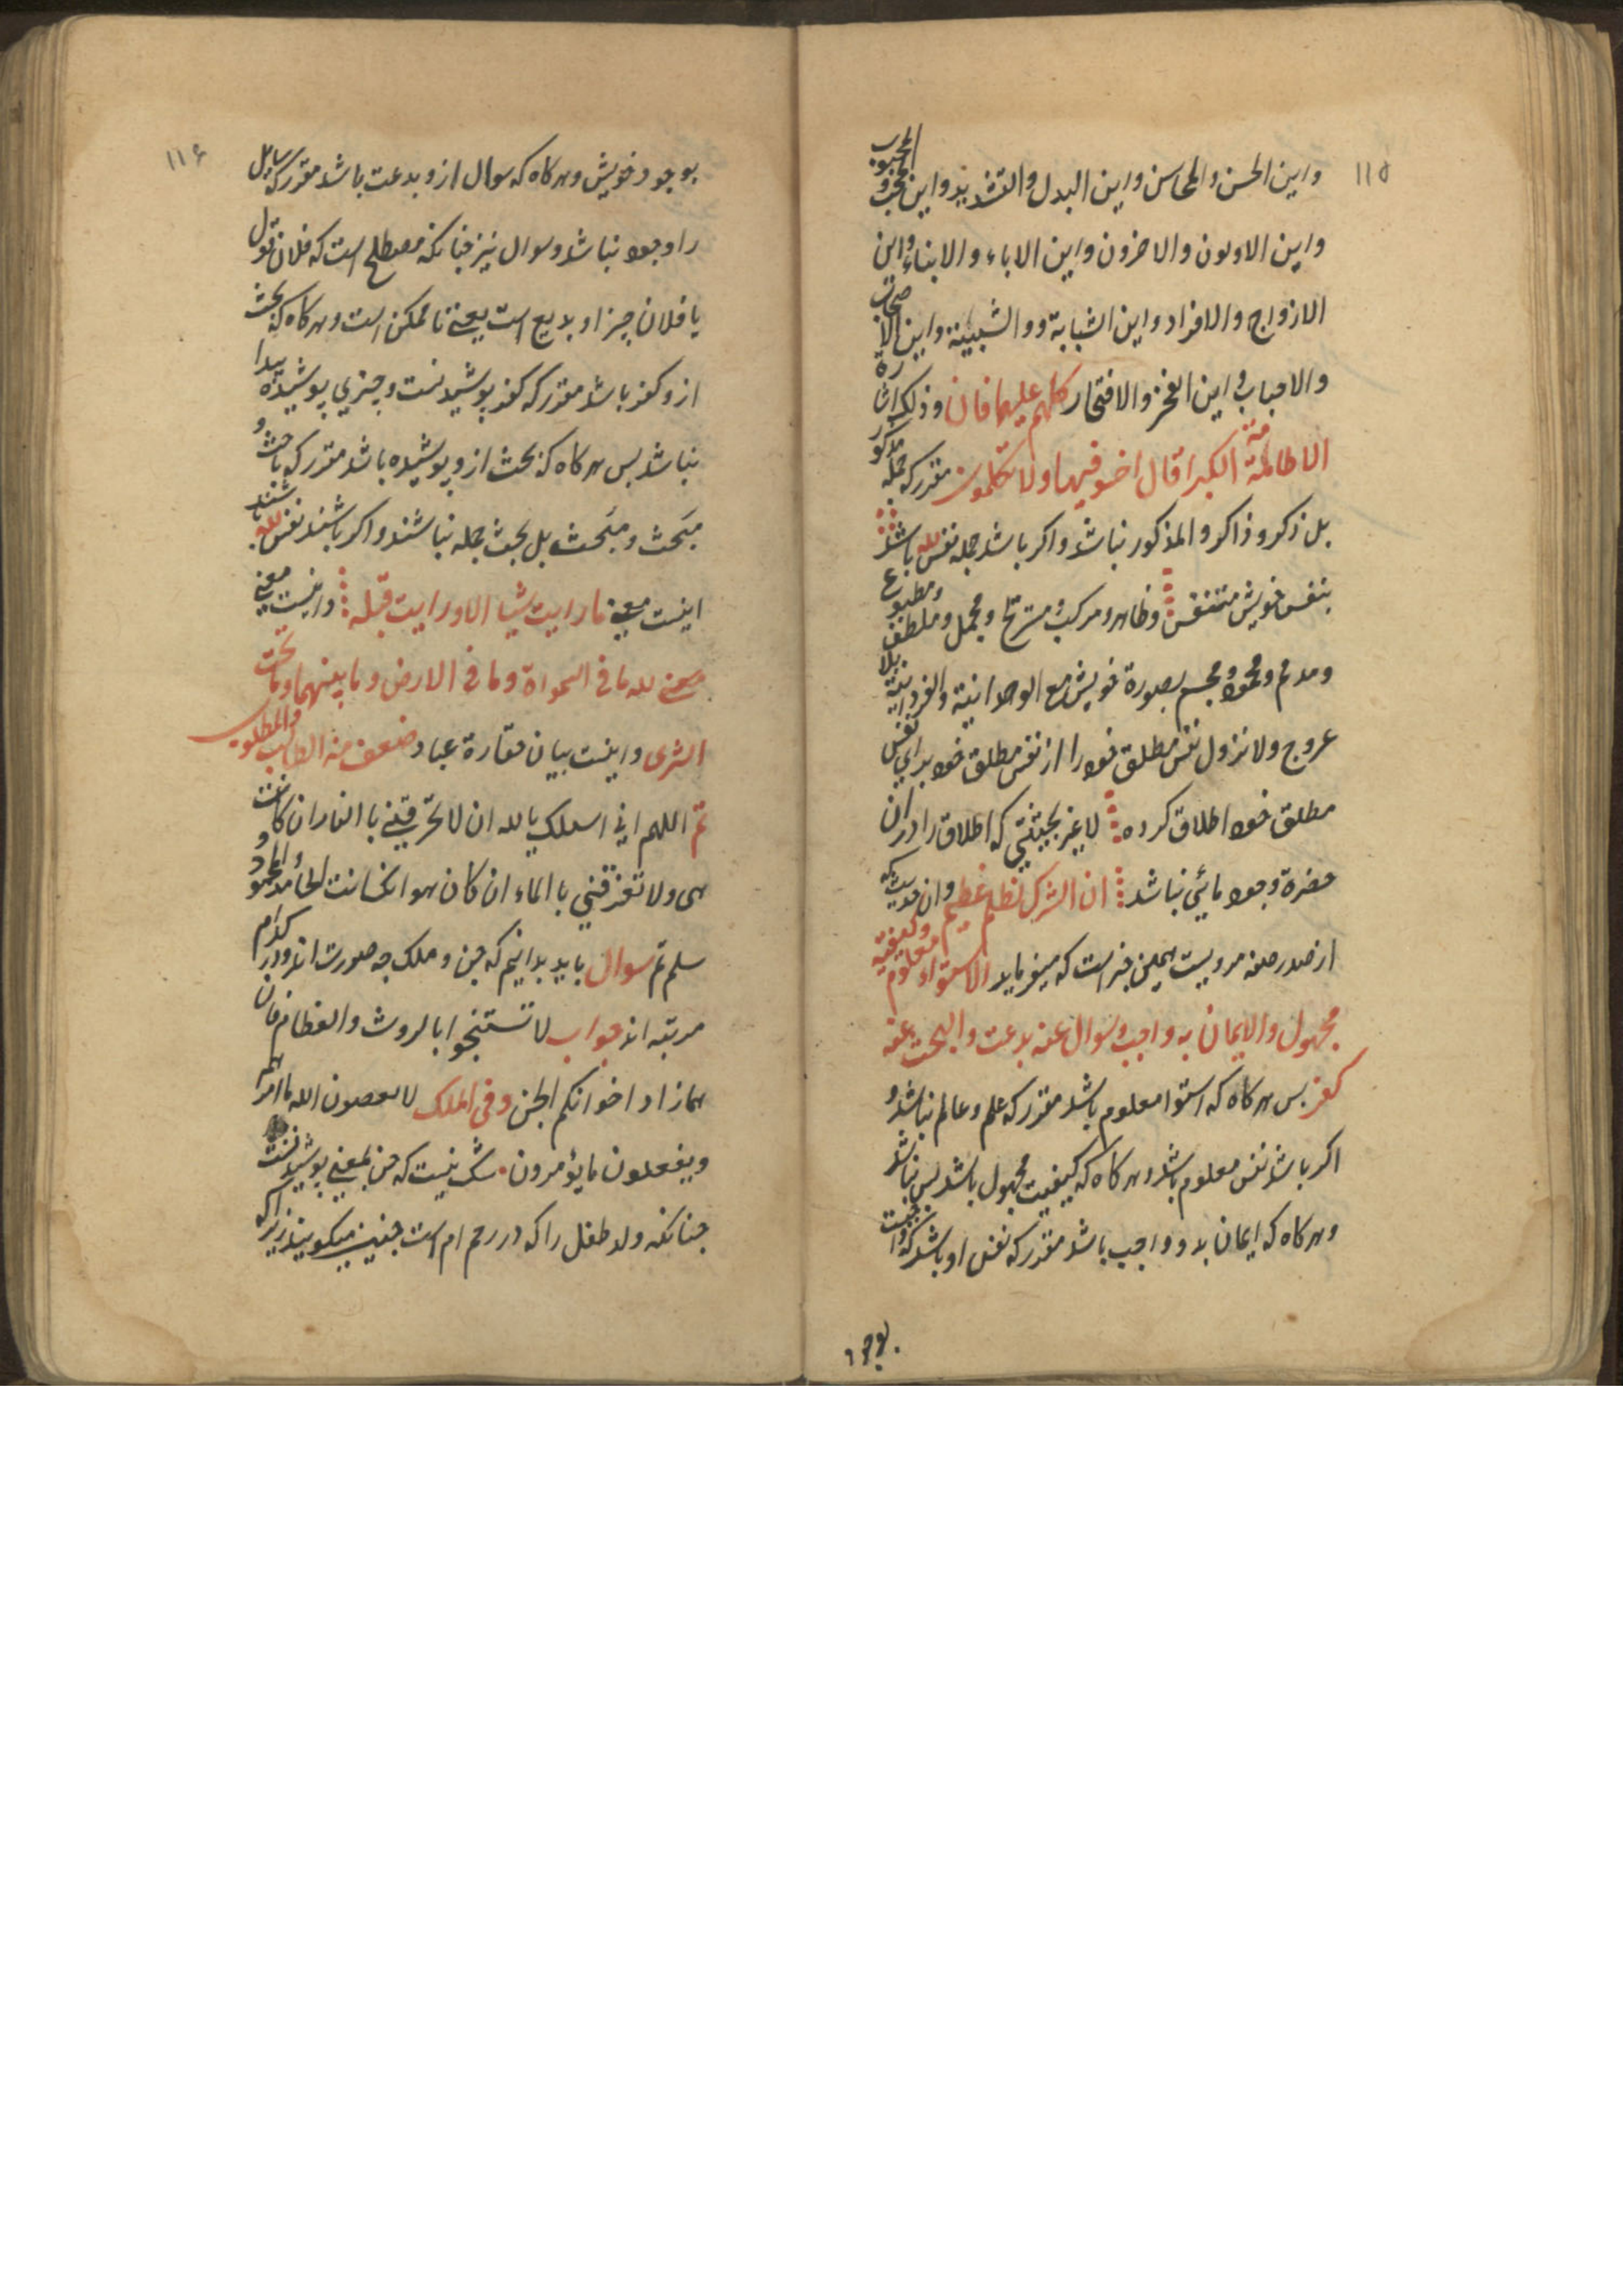 ۱۱۵
واین الحسن والمحاسن واین البدل والتشدید واین المحب والمحبوب
واین الاولون والاخرون واین الاباء والابناء واین
الازواج والافراد واین الشبابة ووالشبیبة واین الاصحاب
والاحباب واین الفخر والافتخار کلهم علیها فان وذلک اشارة
الا طامة الکبرا قال اخسو فیها ولا تکلمون مقدر که جمله مذکور
بل ذکر و ذاکر والمذکور نباشد واکر باشد جمله نفس الله باشد
بنفس خویش متنفس وظاهر ومرکب ومشرح ومجمل وملطف ومطبوع
ومدغم ومحمود ومجسم بصورة خویش مع الوحدانیة والفردانیة بلا
عروج ولا نزول نفس مطلق خود را از نفس مطلق خود برای نفس
مطلق خود اطلاق کرده لا غیر بحیثیتی که اطلاق را در ان
حضرة وجود مائی نباشد ان الشرک لظلم عظیم وان حدیث که
از صدر صفه مرویست همین خبر است که میفرماید الاستواء معلوم وکیفیة
مجهول والایمان به واجب وسوال عنه بدعت والبحث عنه
کفر بس هرکاه که استوا معلوم باشد مقرر که علم وعالم نباشد و
اکر باشد نفس معلوم باشد وهرکاه که کیفیت مجهول باشد بس نباشد
وهرکاه که ایمان بدو واجب باشد مقدر که نفس او باشد که واجبست
بوجود
۱۱۶
بوجود خویش وهرکاه که سوال ازو بدعت باشد مقرر که سایل
را وجود نباشد وسوال نیز جنانکه مصطلح است که فلان قول
یا فلان چیز او بدیع است یعنی نا ممکن است وهرکاه که بحث
ازو کفر باشد مقرر که کفر پوشیدنست وچیزی پوشیده پیدا
نباشد بس هرکاه که بحث ازو پوشیده باشد مقرر که باحث و
مبحث ومبحث بل بحث جمله نباشند واکر باشند نفس الله باشند
اینست معنی ما رایت شیا الا ورایت قبله واینست معنی
معنی لله ما فی السمواة وما فی الارض وما بینهما وما تحت
الثری واینست بیان مقارة عباد ضعف منه الطالب والمطلوب
تم اللهم انی اسلک یا لله ان لا تحرقنی با النار ان کانت
هی ولا تغرقنی با الماء ان کان هو انک انت الحامد والمحمود
سلم تم سوال باید بدانیم که جن وملک جه صورت اند ودر کدام
مرتبه اند جواب لا تستنجوا بالروث والعظام فان
هما زاد اخوانکم الجن وفی الملک لا یعصون الله ما امرهم
ویفعلون ما یؤمرون شک نیست که جن بمعنی پوشیدنست
جنانکه ولد طفل را که در رحم ام است جنین میکویند زیرا که